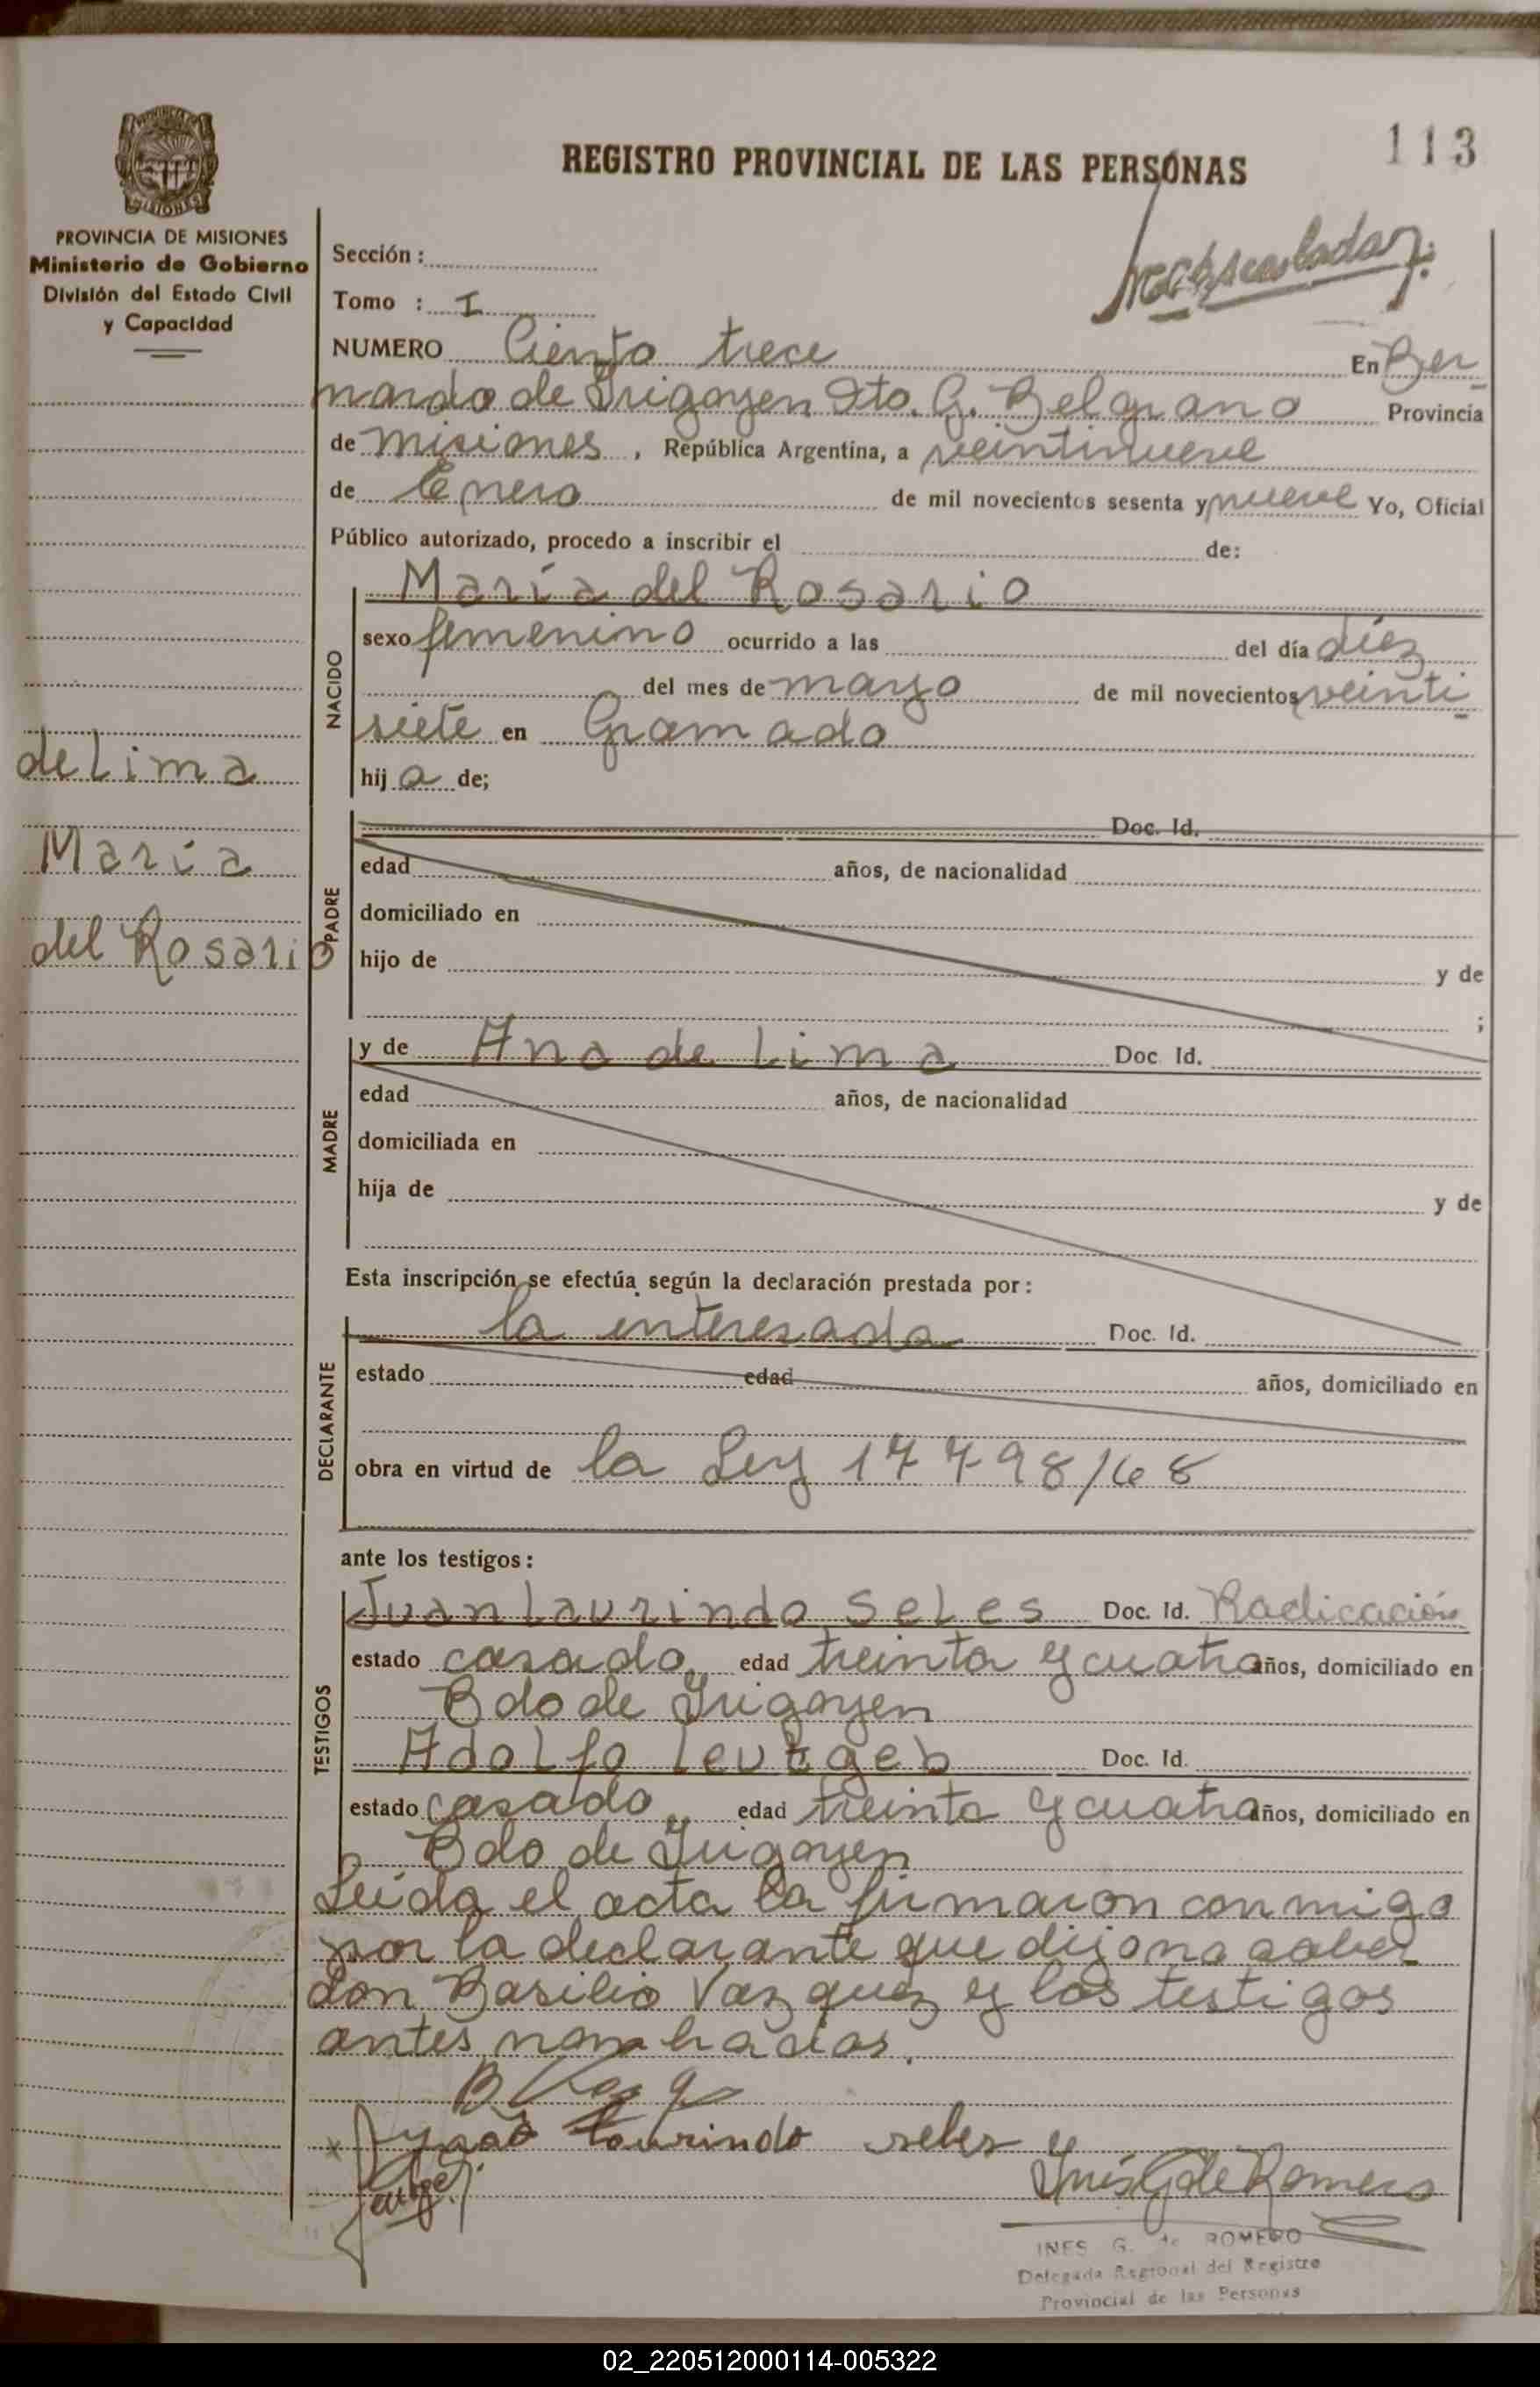 113
REGISTRO PROVINCIAL DE LAS PERSONAS
MISIONES
PROVINCIA DE MISIONES
Ministerio de Gobierno
División del Estado Civil
y Capacidad
Sección :
Tomo : I
NUMERO Ciento trece En Ber
nardo de Irigoyen Dto. G. Belgrano Provincia
de Misiones , República Argentina, a veintinueve
de Enero de mil novecientos sesenta y nueve Yo, Oficial
Público autorizado, procedo a inscribir el de:
NACIDO
María del Rosario
sexo femenino ocurrido a las del día diez
del mes de mayo de mil novecientos veinti
siete en Gramado
hij a de;
de Lima
María
del Rosario
PADRE
Doc. Id.
edad años, de nacionalidad
domiciliado en
hijo de y de
;
MADRE
y de Ana de Lima Doc Id.
edad años, de nacionalidad
domiciliada en
hija de y de
Esta inscripción se efectúa según la declaración prestada por :
DECLARANTE
la interesada Doc. Id.
estado edad años, domiciliado en
obra en virtud de la Ley 17798/68
ante los testigos :
TESTIGOS
Juan Laurindo Seles Doc. Id. Radicación
estado casado edad treinta y cuatro años, domiciliado en
Bdo de Irigoyen
Adolfo Leutgeb Doc. Id.
estado casado edad treinta y cuatro años, domiciliado en
Bdo de Irigoyen
Leída el acta la firmaron conmigo
por la declarante que dijo no saber
don Basilio Vazquez y los testigos
antes nombrados.
laurindo seles
Inés G de Romero
INES G. de ROMERO
Delegada Regional del Registro
Provincial de las Personas
02_220512000114-005322